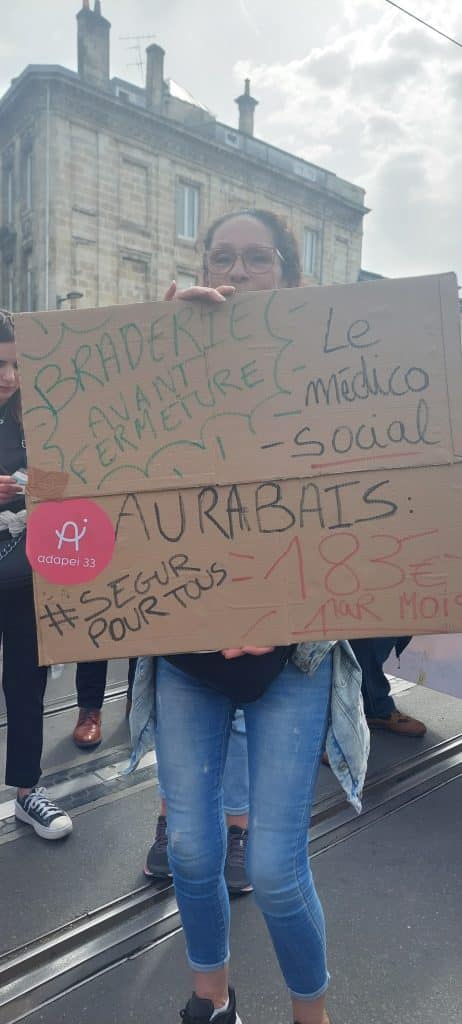 BRADERIE
AVANT
FERMETURE
Le
médico
-social
AURABAIS:
adapei 33
#SEGUR
POUR TOUS
-183€
PAR MOIS